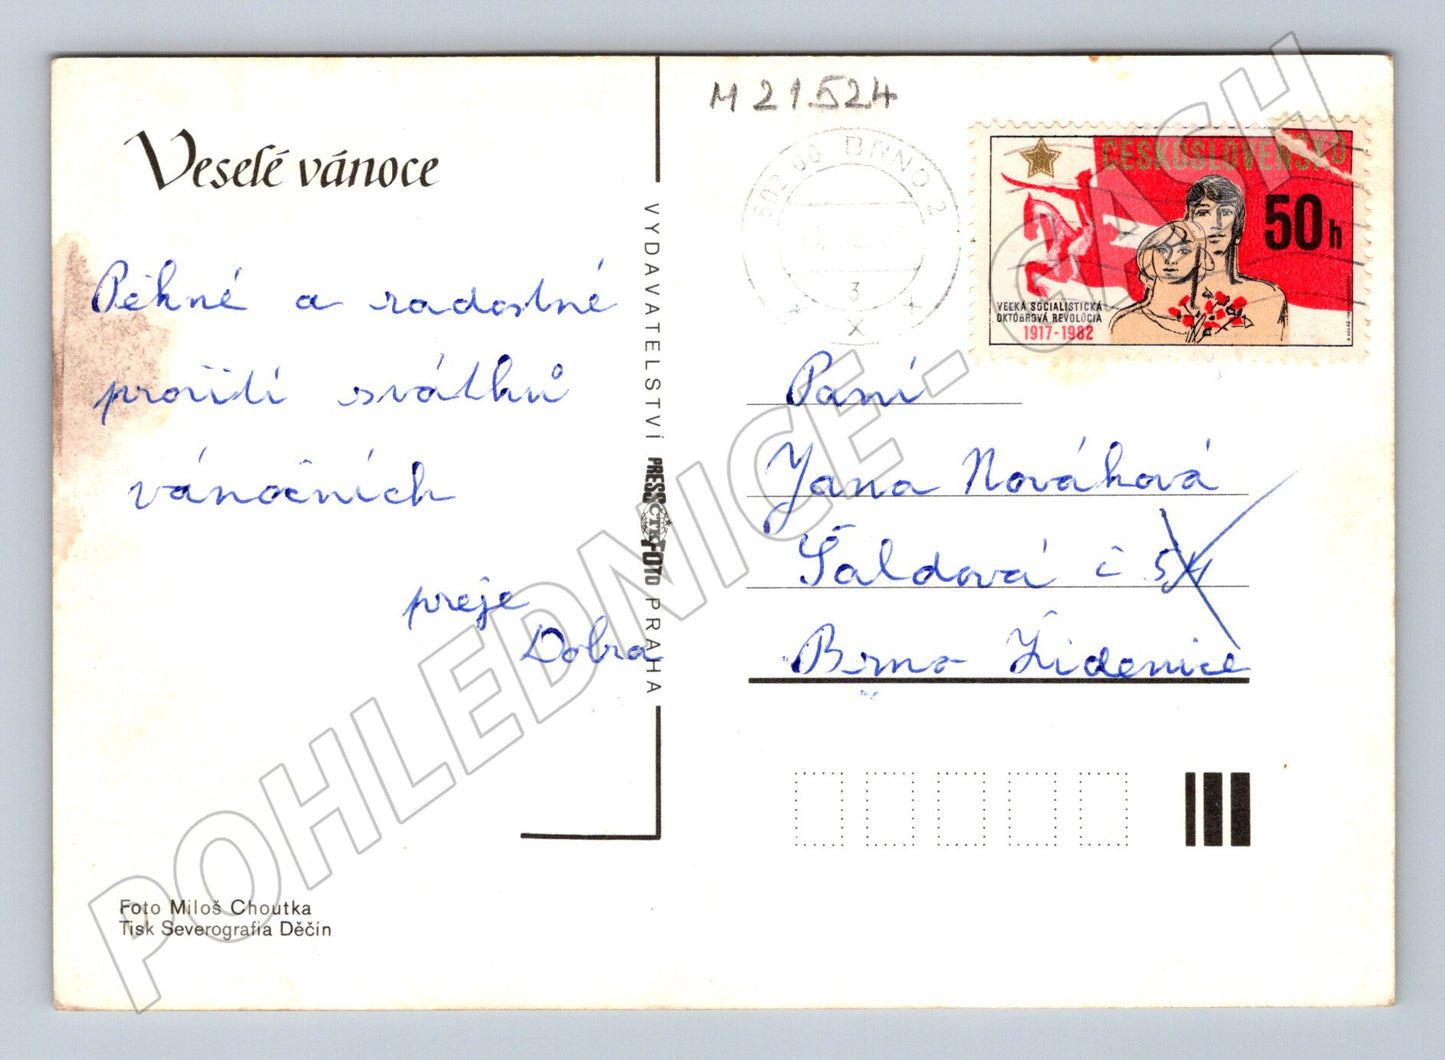 M 21524
Veselé vánoce
602 00 BRNO 2
3
x
ČESKOSLOVENSKO
50h
VEĽKÁ SOCIALISTICKÁ
OKTÓBROVÁ REVOLÚCIA
1917-1982
Pěkné a radostné
svátků
vánočních
preje
Dobra
VYDAVATELSTVÍ PRESSFOTO PRAHA
ČTK
Paní
Jana Nováková
Šaldová č 54
Brno Židenice
Foto Miloš Choutka
Tisk Severografia Děčín
POHLEDNICE - CASH